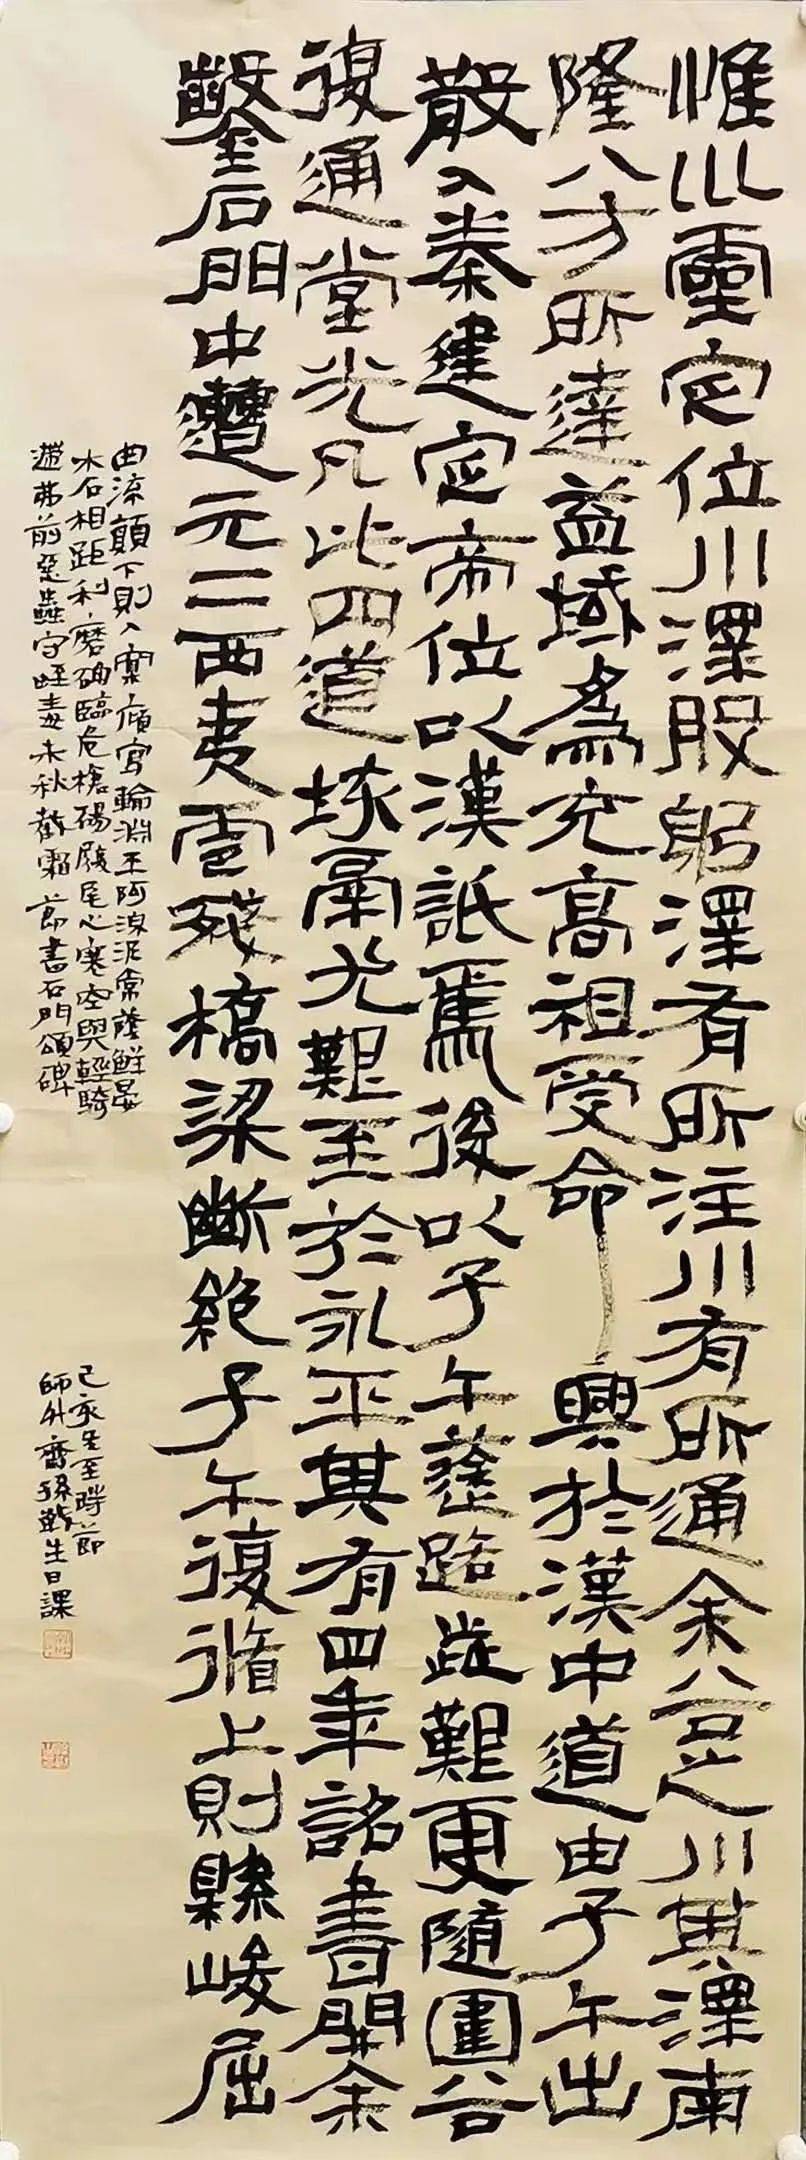 惟𡿦靈定位川澤股躬澤有所注川有所通余谷之川其澤南
隆八方所達益域爲充高祖受命興於漢中道由子午出
散入秦建定帝位以漢詆焉後以子午蓫路歰難更隨圍谷
復通堂光凡此四道垓鬲尤艱至於永平其有四年詔書開余
鑿石門中遭元二西夷虐殘橋梁斷絶子午復循上則縣峻屈
曲流顛下則入寞傾寫輸淵平阿湶泥常蔭鮮晏
木石相距利磨确臨危槍碭履尾心寒空輿輕騎
遰㝵弗前惡蟲守蛭毒未秋截霜節書石門頌碑
己亥冬至時節
師外齋孫生日課